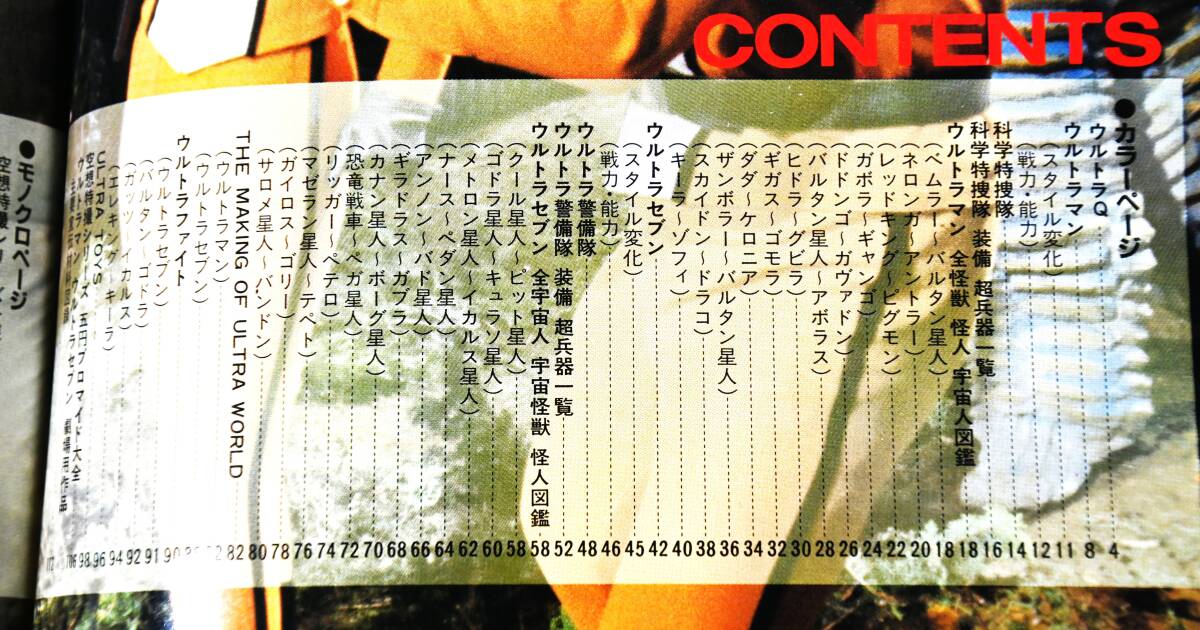 CONTENTS
●カラーページ
ウルトラQ 4
ウルトラマン 8
(スタイル変化) 11
(戦力・能力) 12
科学特捜隊 14
科学特捜隊 装備 超兵器一覧 16
ウルトラマン 全怪獣 怪人 宇宙人図鑑 18
(ベムラー〜バルタン星人) 18
(ネロンガ〜アントラー) 20
(レッドキング〜ピグモン) 22
(ガボラ〜ギャンゴ) 24
(ドドンゴ〜ガヴァドン) 26
(バルタン星人〜アボラス) 28
(ヒドラ〜グビラ) 30
(ギガス〜ゴモラ) 32
(ダダ〜ケロニア) 34
(ザンボラー〜バルタン星人) 36
(スカイドン〜ドラコ) 38
(キーラ〜ゾフィ) 40
ウルトラセブン 42
(スタイル変化) 45
(戦力・能力) 46
ウルトラ警備隊 48
ウルトラ警備隊 装備 超兵器一覧 52
ウルトラセブン 全宇宙人 宇宙怪獣 怪人図鑑 58
(クール星人〜ピット星人) 58
(ゴドラ星人〜キュラソ星人) 60
(メトロン星人〜イカルス星人) 62
(ナース〜ペダン星人) 64
(アンノン〜バド星人) 66
(ギラドラス〜ガブラ) 68
(カナン星人〜ボーグ星人) 70
(恐竜戦車〜ペガ星人) 72
(リッガー〜ペテロ) 74
(マゼラン星人〜テペト) 76
(ガイロス〜ゴリー) 78
(サロメ星人〜バンドン) 80
THE MAKING OF ULTRA WORLD 82
(ウルトラマン)
(ウルトラセブン)
ウルトラファイト 90
(ウルトラセブン) 91
(バルタン〜ゴドラ) 92
(ガッツ〜イカルス) 94
(エレキング〜キーラ) 96
ULTRA TOYS 98
空想特撮シリーズ 五円ブロマイド大全 106
ウルトラマン ウルトラセブン 劇場用作品
●モノクロページ
空想特撮シリーズ